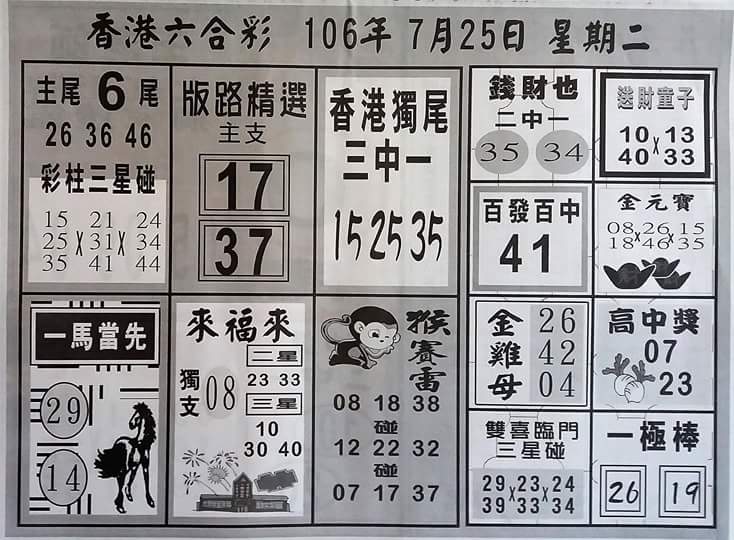 香港六合彩 106年 7月25日 星期二
主尾 6 尾
26 36 46
彩柱三星碰
15 21 24
25 x 31 x 34
35 41 44
版路精選
主支
17
37
香港獨尾
三中一
15 25 35
錢財也
二中一
35 34
送財童子
10 x 13
40 33
百發百中
41
金元寶
08 x 26 x 15
18 46 35
一馬當先
29
14
來福來
獨支
08
二星
23 33
三星
10
30 40
猴賽雷
08 18 38
碰
12 22 32
碰
07 17 37
金雞母
26
42
04
高中獎
07
23
雙喜臨門
三星碰
29 x 23 x 24
39 33 34
一極棒
26 19